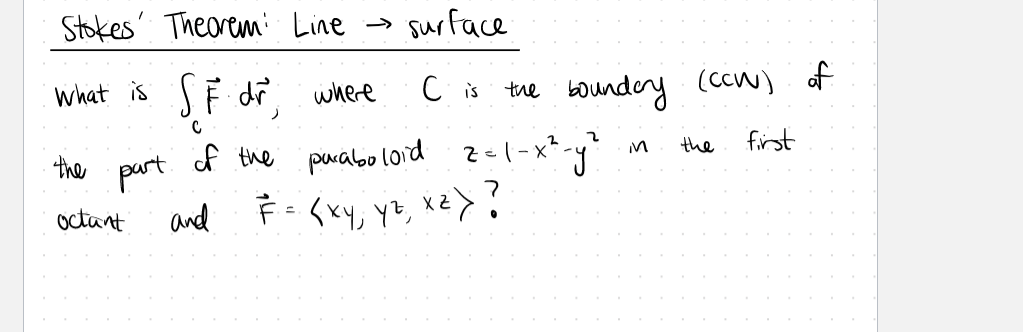 Stokes' Theorem: Line → surface
What is ∫_C F⃗ · dr⃗, where C is the boundary (CCW) of
the part of the paraboloid z=1-x²-y² in the first
octant and F⃗ = ⟨xy, yz, xz⟩?